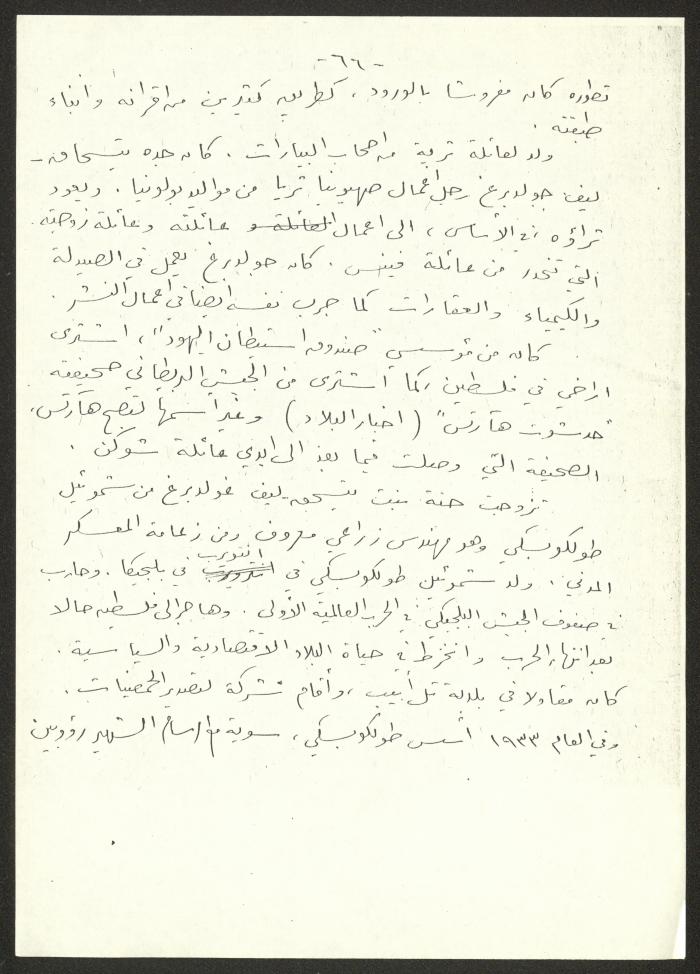 -٦٦-
تطوره كان مفروشا بالورود، كطريق كثيرين من اقرانه وأبناء
طبقته.
ولد لعائلة ثرية من اصحاب البيارات. كان جده يتسحاق-
ليف جولدبرغ رجل اعمال صهيونيا ثريا من مواليد بولونيا. ويعود
ثراؤه، في الأساس، الى اعمال العائلة عائلته وعائلة زوجته
التي تنحدر من عائلة فينس. كان جولدبرغ يعمل في الصيدلة
والكيمياء والعقارات كما جرب نفسه ايضا في أعمال النشر.
كان من مؤسسي "صندوق استيطان اليهود"، اشترى
اراضي في فلسطين، كما اشترى من الجيش البريطاني صحيفة
"حدشوت هآرتس" (اخبار البلاد) وغير اسمها لتصبح هآرتس،
الصحيفة التي وصلت فيما بعد الى ايدي عائلة شوكن.
تزوجت حنة بنت يتسحق ليف غولدبرغ من شموئيل
طولكوبسكي وهو مهندس زراعي معروف ومن زعامة المعسكر
المدني. ولد شموئيل طولكوبسكي في انتويرب في بلجيكا. وحارب
في صفوف الجيش البلجيكي في الحرب العالمية الأولى. وهاجر الى فلسطين حالا
بعد انتهاء الحرب وانخرط في حياة البلاد الاقتصادية والسياسية.
كان مقاولا في بلدية تل أبيب، وأقام شركة لتصدير الحمضيات.
وفي العام ١٩٣٣ أسس طولكوبسكي، سوية مع الرسام الشهير رؤوبين